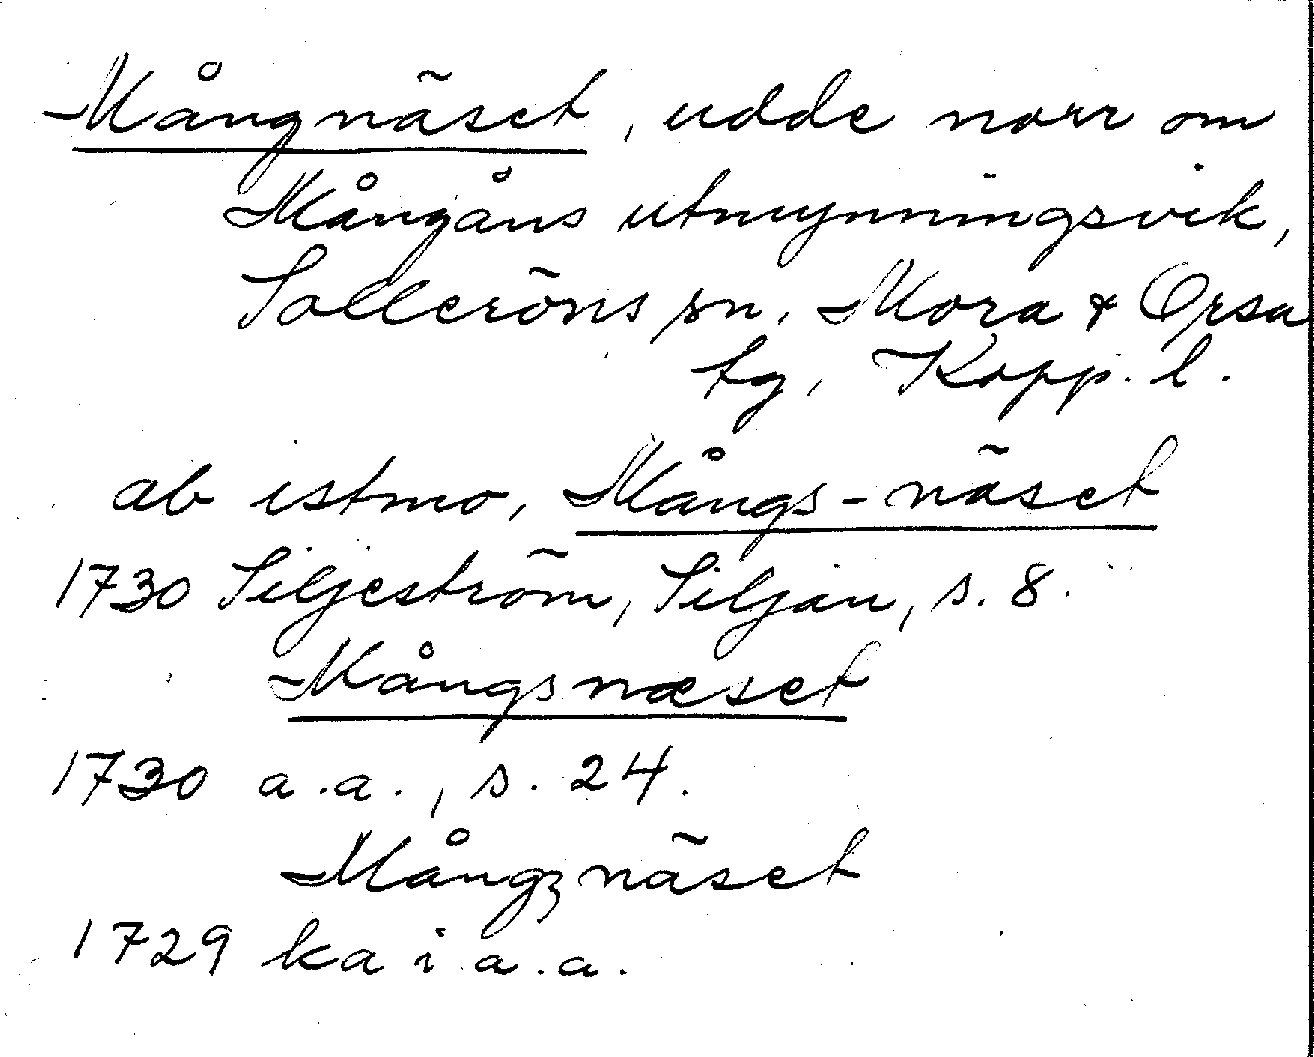 Mångnäset, udde norr om
Mångåns utmynningsvik,
Solleröns sn, Mora & Orsa
tg, Kopp. l.
ab istmo, Mångs-näset
1730 Siljeström, Siljan, s. 8.
Mångsnæset
1730 a.a., s. 24.
Mångznäset
1729 ka i a.a.